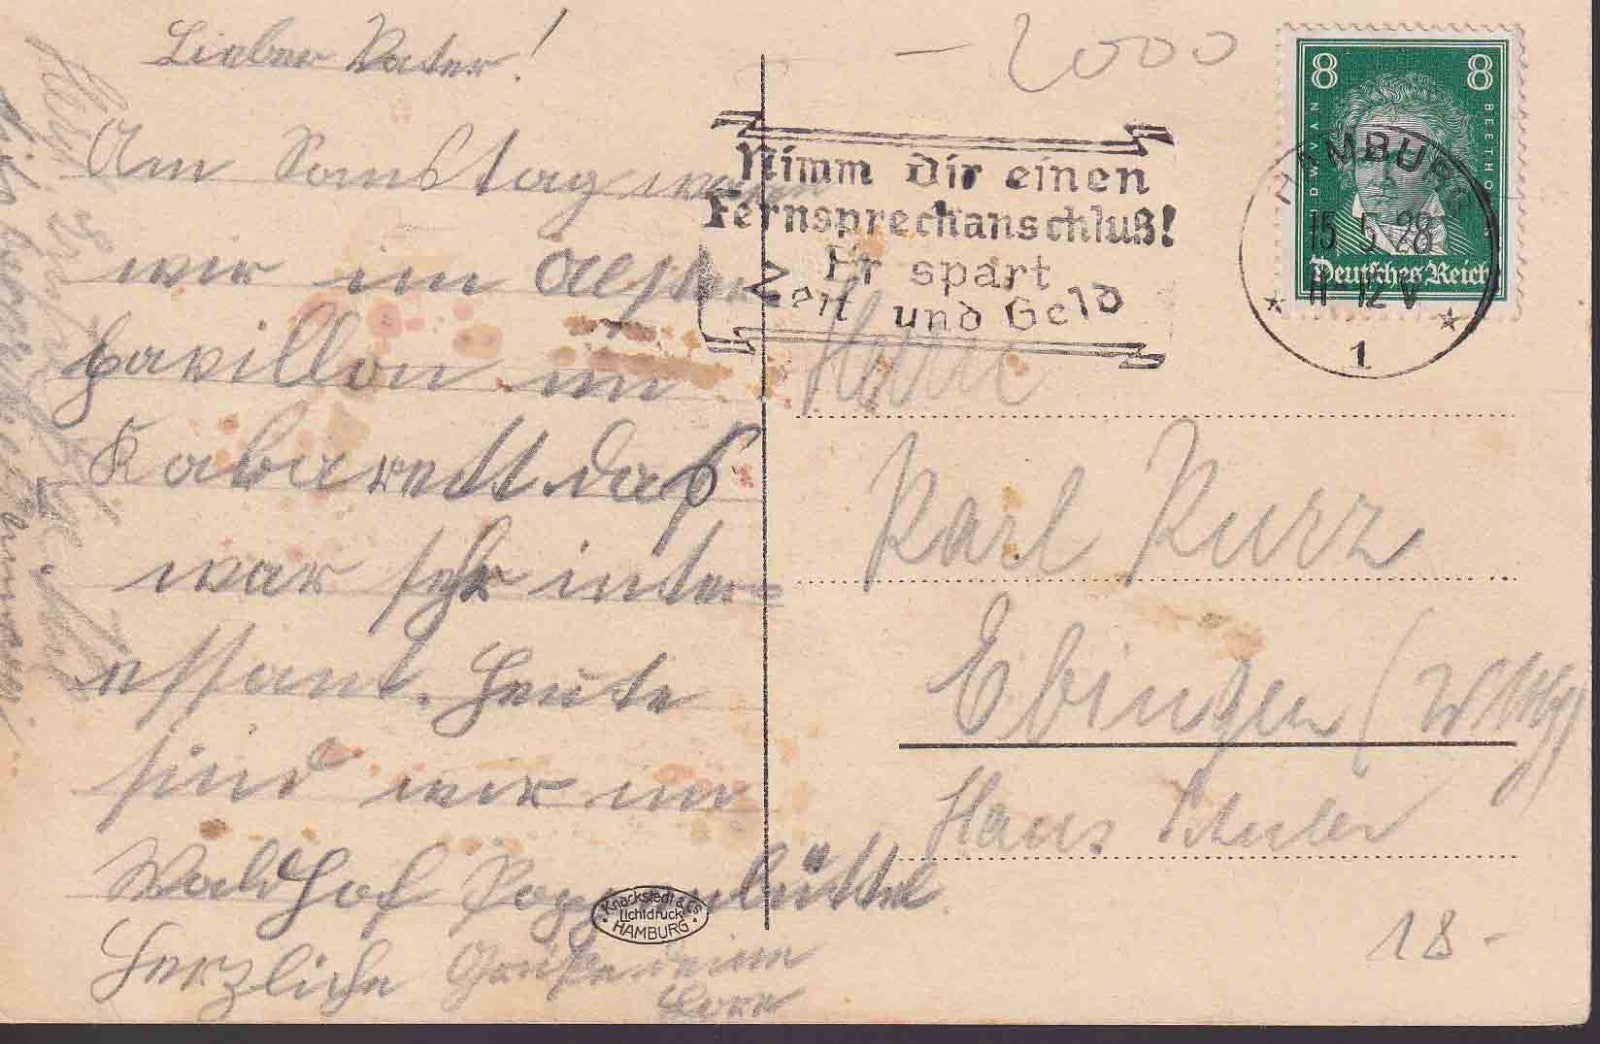 Lieber Vater!
Am Samstag waren
wir im Alster
pavillon im
Kabarett das
war sehr inter=
essant. Heute
sind wir im
Waldhof Poppenbüttel
Herzliche Grüße deine
- 2000
Nimm dir einen
Fernsprechanschluß!
Er spart
Zeit und Geld
8 8
LUDWIG VAN BEETHOVEN
Deutsches Reich
HAMBURG
15.5.28
11-12 V
* 1 *
Herrn
Karl Kurz
Ebingen (Wttbg)
Hans Schuler
Knackstedt & Co.
Lichtdruck
HAMBURG
18-